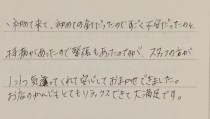 初めて来て、初めての事だったのですごく不安だったのと
持病があったので緊張もあったのですが、スタッフの方が
1つ1つ気遣ってくれて安心しておまかせできました。
お店のかんじもとてもリラックスできて大満足です。